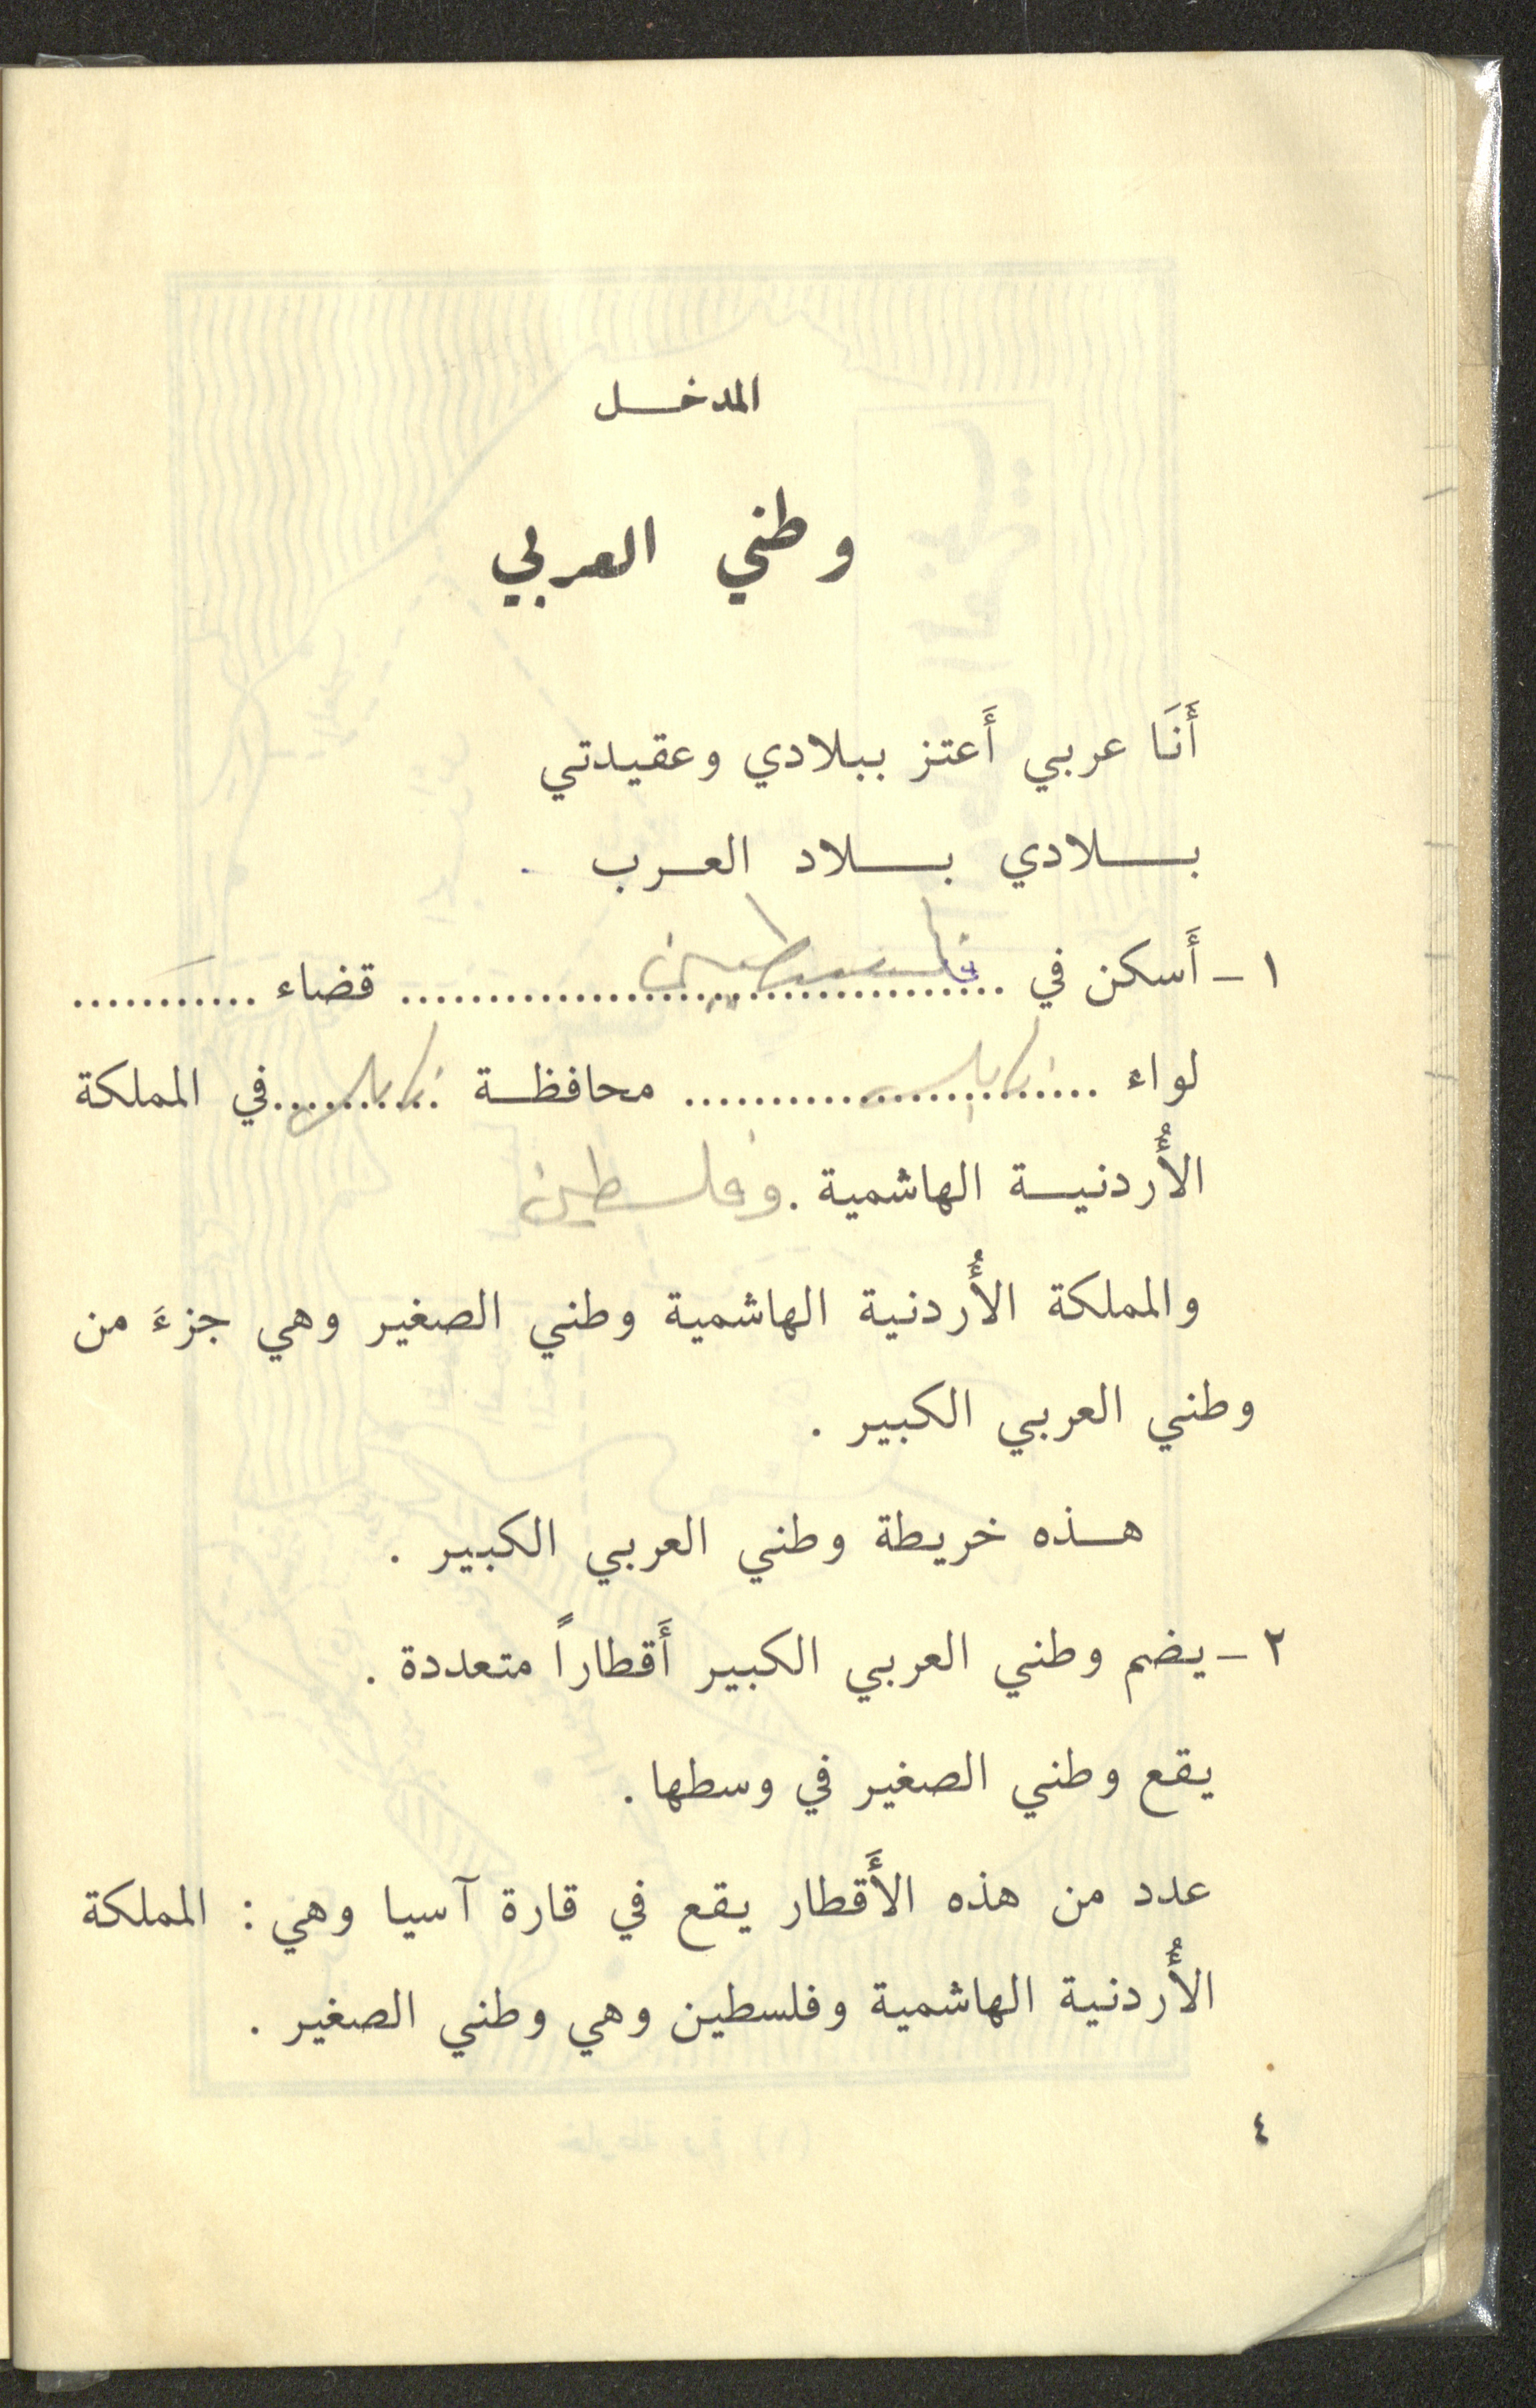 المدخل
وطني العربي
أَنَا عربي أَعتز ببلادي وعقيدتي
بلادي بلاد العرب .
١ - أَسكن في .......فلسطين....... قضاء ...........
لواء .......نابلس....... محافظة ....نابلس.... في المملكة
الأُردنية الهاشمية . وفلسطين
والمملكة الأُردنية الهاشمية وطني الصغير وهي جزءَ من
وطني العربي الكبير .
هذه خريطة وطني العربي الكبير .
٢ - يضم وطني العربي الكبير أَقطاراً متعددة .
يقع وطني الصغير في وسطها .
عدد من هذه الأَقطار يقع في قارة آسيا وهي : المملكة
الأُردنية الهاشمية وفلسطين وهي وطني الصغير .
٤